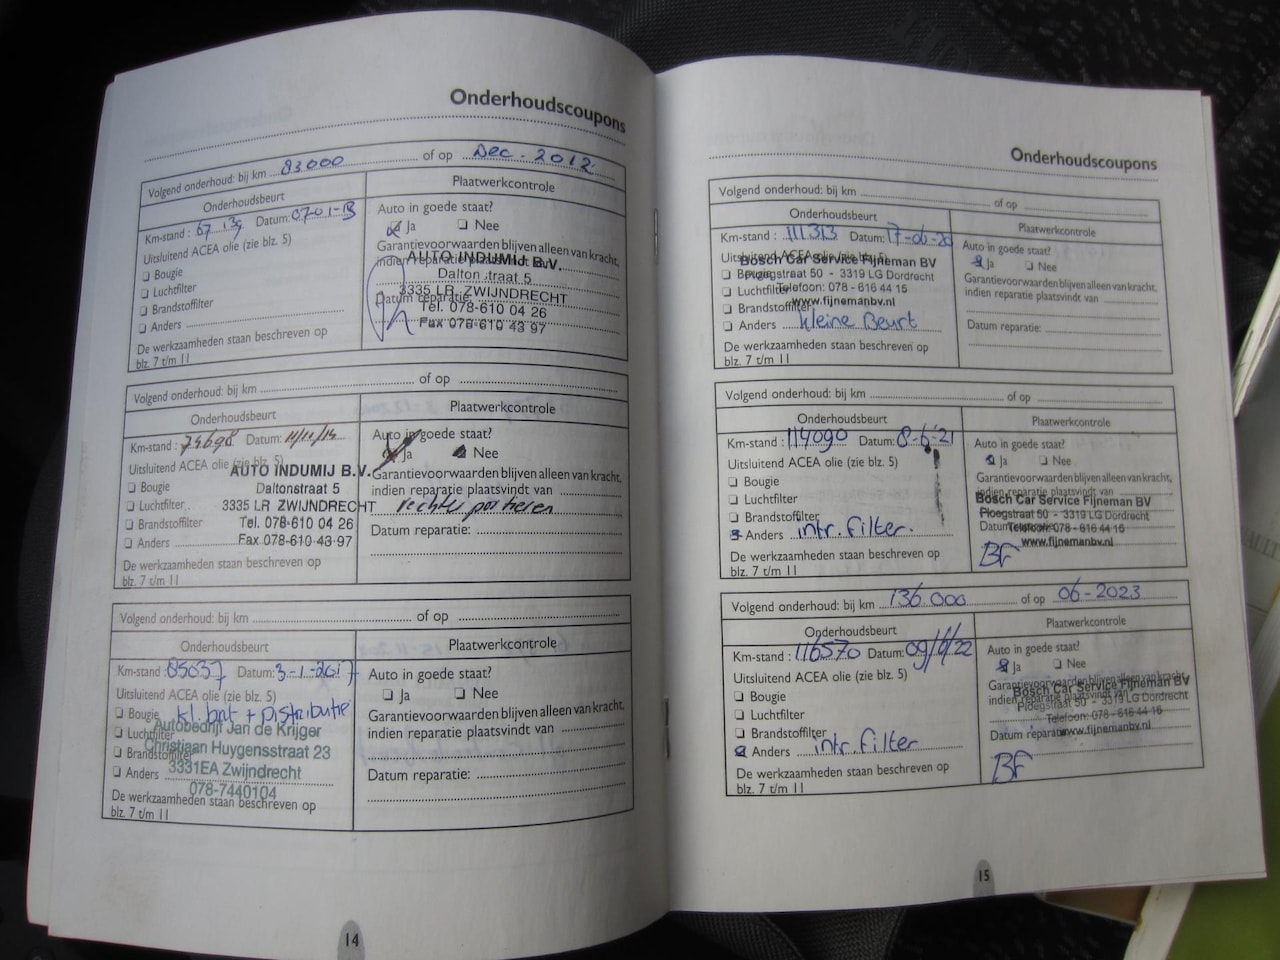 Onderhoudscoupons
Volgend onderhoud: bij km 83000 of op Dec. 2012
Onderhoudsbeurt
Plaatwerkcontrole
Km-stand : 67.139 Datum: 07-01-13
Auto in goede staat?
Uitsluitend ACEA olie (zie blz. 5)
Ja Nee
Bougie
Garantievoorwaarden blijven alleen van kracht,
Luchtfilter
indien reparatie plaatsvindt van
Brandstoffilter
Datum reparatie:
Anders
De werkzaamheden staan beschreven op
blz. 7 t/m 11
AUTO INDUMIJ B.V.
Daltonstraat 5
3335 LR ZWIJNDRECHT
Tel. 078-610 04 26
Fax 078-610 43 97
Volgend onderhoud: bij km of op
Onderhoudsbeurt
Plaatwerkcontrole
Km-stand : 74698 Datum: 11/11/14
Auto in goede staat?
Uitsluitend ACEA olie (zie blz. 5)
Ja Nee
Bougie
Garantievoorwaarden blijven alleen van kracht,
Luchtfilter
indien reparatie plaatsvindt van
Brandstoffilter
rechter portieren
Anders
Datum reparatie:
De werkzaamheden staan beschreven op
blz. 7 t/m 11
AUTO INDUMIJ B.V.
Daltonstraat 5
3335 LR ZWIJNDRECHT
Tel. 078-610 04 26
Fax 078-610 43 97
Volgend onderhoud: bij km of op
Onderhoudsbeurt
Plaatwerkcontrole
Km-stand : 85037 Datum: 3-1-2017
Auto in goede staat?
Uitsluitend ACEA olie (zie blz. 5)
Ja Nee
Bougie kl. brt + Distributie
Garantievoorwaarden blijven alleen van kracht,
Luchtfilter
indien reparatie plaatsvindt van
Brandstoffilter
Anders
Datum reparatie:
De werkzaamheden staan beschreven op
blz. 7 t/m 11
Autobedrijf Jan de Krijger
Christiaan Huygensstraat 23
3331EA Zwijndrecht
078-7440104
14
Onderhoudscoupons
Volgend onderhoud: bij km of op
Onderhoudsbeurt
Plaatwerkcontrole
Km-stand : 111313 Datum: 17-06-20
Auto in goede staat?
Uitsluitend ACEA olie (zie blz. 5)
Ja Nee
Bougie
Garantievoorwaarden blijven alleen van kracht,
Luchtfilter
indien reparatie plaatsvindt van
Brandstoffilter
Anders kleine Beurt
Datum reparatie:
De werkzaamheden staan beschreven op
blz. 7 t/m 11
Bosch Car Service Fijneman BV
Ploegstraat 50 - 3319 LG Dordrecht
Telefoon: 078 - 616 44 15
www.fijnemanbv.nl
Volgend onderhoud: bij km of op
Onderhoudsbeurt
Plaatwerkcontrole
Km-stand : 114090 Datum: 8-6-21
Auto in goede staat?
Uitsluitend ACEA olie (zie blz. 5)
Ja Nee
Bougie
Garantievoorwaarden blijven alleen van kracht,
Luchtfilter
indien reparatie plaatsvindt van
Brandstoffilter
Anders intr. filter.
Datum reparatie:
De werkzaamheden staan beschreven op
blz. 7 t/m 11
Bosch Car Service Fijneman BV
Ploegstraat 50 - 3319 LG Dordrecht
Telefoon: 078 - 616 44 15
www.fijnemanbv.nl
BF
Volgend onderhoud: bij km 136.000 of op 06-2023
Onderhoudsbeurt
Plaatwerkcontrole
Km-stand : 116570 Datum: 09/6/22
Auto in goede staat?
Uitsluitend ACEA olie (zie blz. 5)
Ja Nee
Bougie
Garantievoorwaarden blijven alleen van kracht,
Luchtfilter
indien reparatie plaatsvindt van
Brandstoffilter
Datum reparatie:
Anders intr. filter
De werkzaamheden staan beschreven op
blz. 7 t/m 11
Bosch Car Service Fijneman BV
Ploegstraat 50 - 3319 LG Dordrecht
Telefoon: 078 - 616 44 15
www.fijnemanbv.nl
BF
15